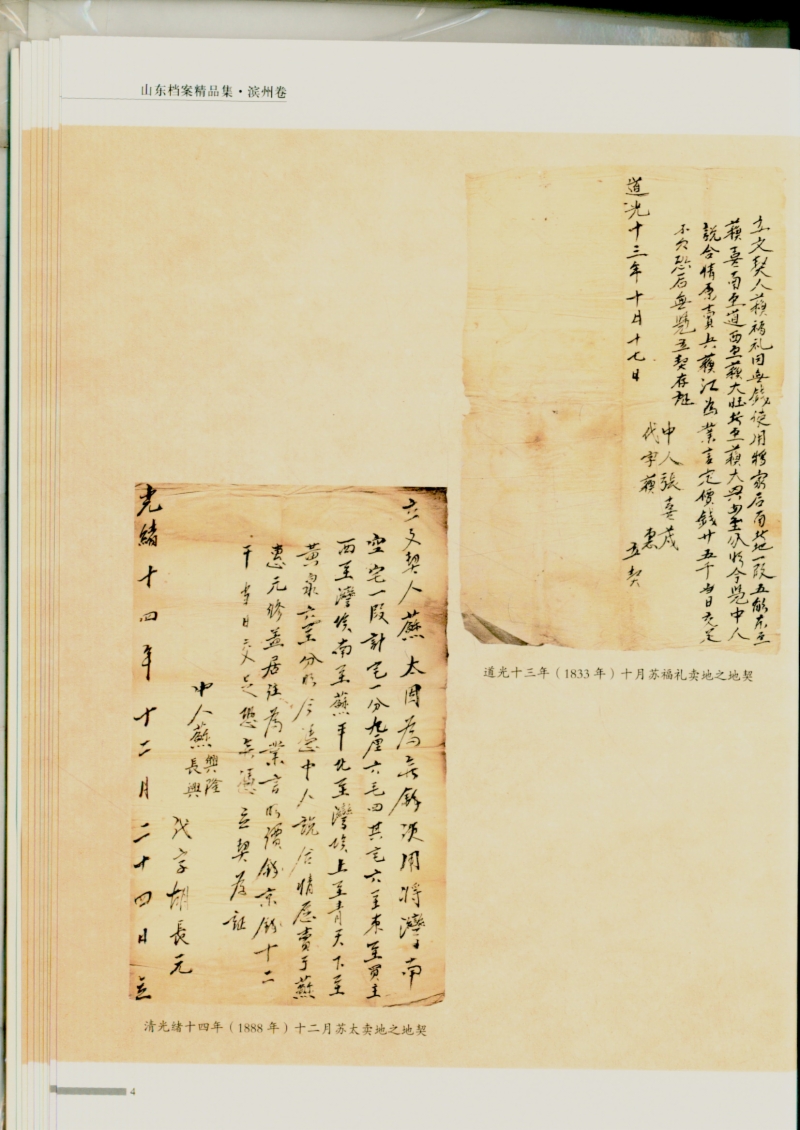 山东档案精品集·滨州卷
立文契人蘇福礼因無錢使用將家后南北地一段五畝東至
蘇喜南至道西至蘇大旺北至蘇大興四至分明今凭中人
說合情愿賣与蘇江為業言定價錢廿五千当日交足
不欠恐后無凭立契存証
中人張喜茂
代字蘇惠
立契
道光十三年十月十七日
道光十三年(1833年)十月苏福礼卖地之地契
立文契人蘇太因為無錢須用將灣南
空宅一段計宅一分九厘六毛四其宅六至東至買主
西至灣埃南至蘇平北至灣埃上至青天下至
黃泉六至分明今憑中人說合情愿賣于蘇
連元修蓋居住為業言明價錢京錢十二
千当日交足恐無憑立契存証
中人蘇興隆
長興
代字胡長元
光緒十四年十二月二十四日立
清光绪十四年(1888年)十二月苏太卖地之地契
4